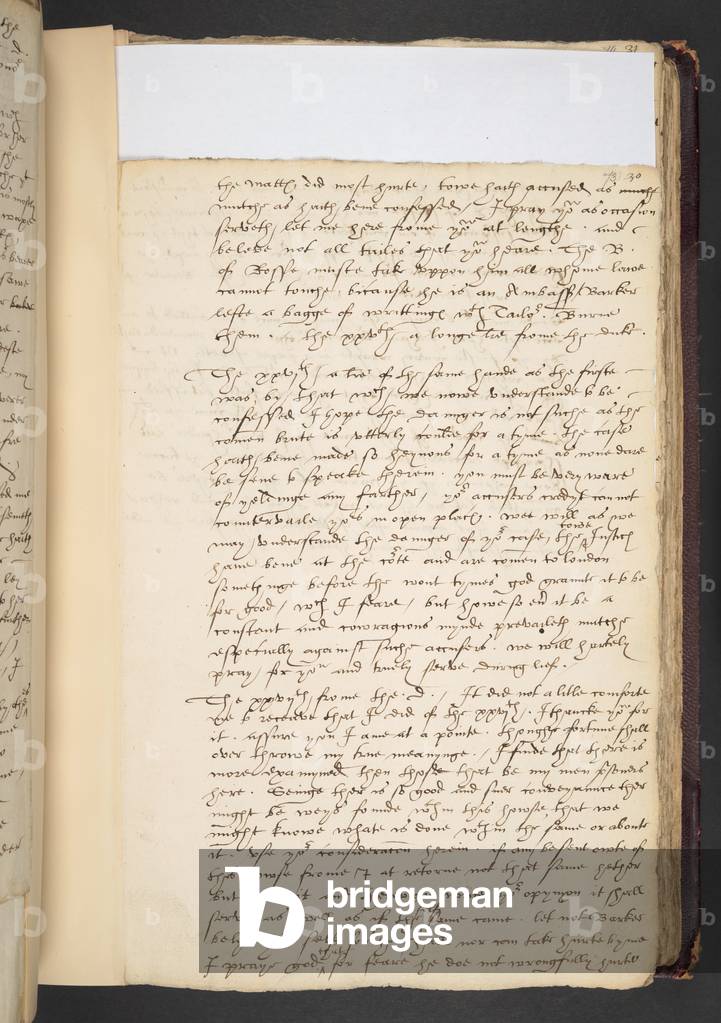 73 30
the matter did most hurte, towe hath accused as muche
mutche as hath bene confessed / I pray yor as occasion
serveth, let me here frome yor at lengthe. and
beleve not all tailes that yor heare. The B.
of Rosse muste sick uppon him all whome lawe
cannot touche, bicause he is an Ambass / Barker
lefte a bagge of writtings wth Tailor. Burne
them. the xxvth, a longe lre frome the duke.
The xxvjth, a lre of the same hande as the firste
was, by that wch we nowe understande to be
confessed I hope the dainger is not suche as the
comen brute is utterly contrie for a tyme the case
hath bene made so heynous for a tyme as none dare
be sene to speake therein. you must be very ware
of yeldinge any farther, yor accusers credyt can not
countervaile yors in open place. wee will as we
may understande the dainger of yor case, the Justices
towe
have bene at the corte and are comen to london
somethinge before the wont tymes god graunte it to be
for good, wch I feare, but howe so ever it be a
constant and couragious mynde prevaileth mutche
especially against suche accusers. we will hartely
pray for you and truely serve during lief.
The xxvijth frome the .d. / It did not a litle comforte
me to receive that I did of the xxvjth. I thancke yor for
it. assure you I ame at a pointe. thoughe fortune shall
over throwe my true meaninge. / I finde that there is
more examyned then those that be my men prisoners
here. Seinge ther is so good and suer conveyaunce ther
might be weys founde wthin this howse that we
might knowe whate is done wthin the same or aboute
it. Use yor consideracon herein. if any be sent owte of
this howse frome & at retorne not that same hether
but yor opynyon it shall
serve as if the same came. let not Barker
nor can take hurte by me
I praye god for feare he doe not wrongfully hurte
bridgeman
images